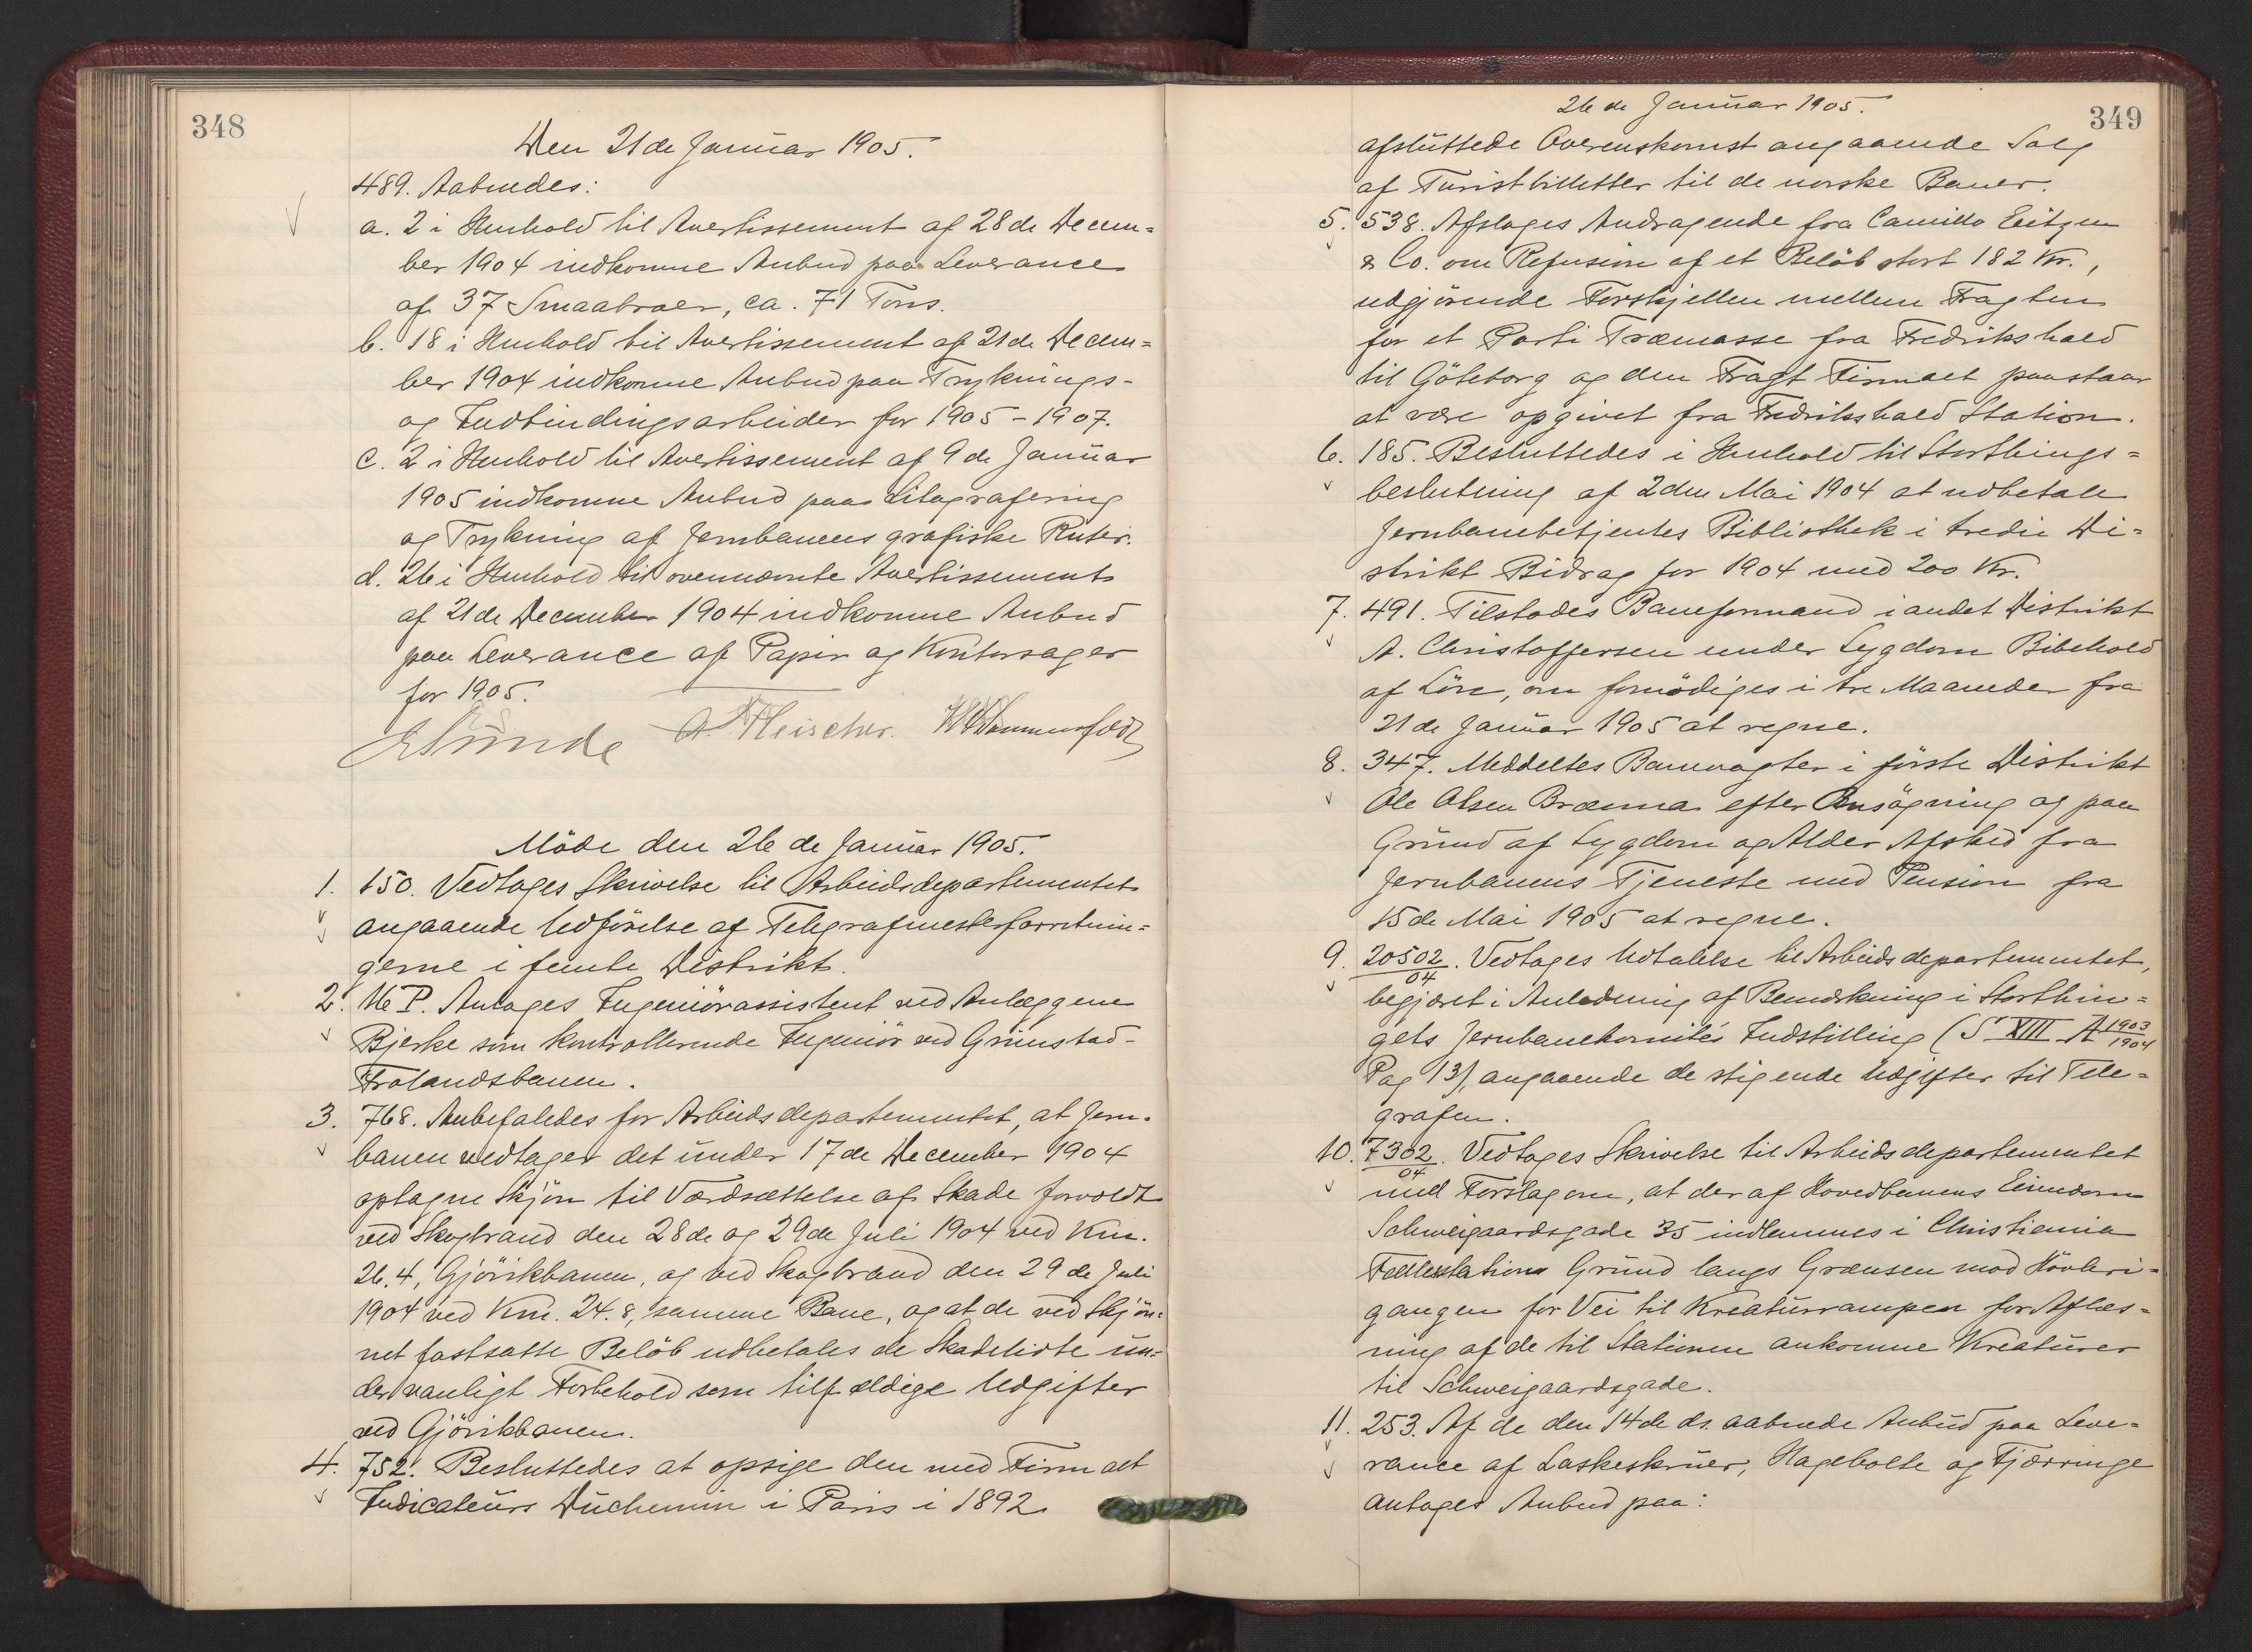 348
Den 21de Januar 1905.
489. Aabnedes:
a. 2 i Henhold til Avertissement af 28de Decem=
ber 1904 indkomne Anbud paa Leverance
af 37 Smaabroer, ca. 71 Tons.
b. 18 i Henhold til Avertissement af 21de Decem=
ber 1904 indkomne Anbud paa Tryknings-
og Indbindingsarbeider for 1905-1907.
c. 2 i Henhold til Avertissement af 9de Januar
1905 indkomne Anbud paa Litografering
og Trykning af Jernbanens grafiske Ruter.
d. 26 i Henhold til ovennævnte Avertissement
af 21de December 1904 indkomne Anbud
paa Leverance af Papir og Kontorsager
for 1905.
E Sunde A. Fleischer.
Möde den 26de Januar 1905.
1. 150. Vedtages Skrivelse til Arbeidsdepartementet
angaaende Udförelse af Telegrafmesterforretnin=
gerne i femte Distrikt.
2. N P. Antages Ingeniörassistent ved Anlæggene
Bjerke som kontrollerende Ingeniör ved Grimstad-
Frolandsbanen.
3. 768. Anbefaledes for Arbeidsdepartementet, at Jern-
banen vedtager det under 17de December 1904
optagne Skjön til Værdsættelse af Skade forvoldt
ved Skogbrand den 28de og 29de Juli 1904 ved Km.
26.4, Gjövikbanen, og ved Skogbrand den 29de Juli
1904 ved Km. 24.8, samme Bane, og at de ved Skjön=
net fastsatte Belöb udbetales de Skadelidte un=
der vanligt Forbehold som tilfældige Udgifter
ved Gjövikbanen.
4. 752. Besluttedes at opsige den med Firmaet
Indicateurs Duchemin i Paris i 1892
349
26de Januar 1905.
afsluttede Overenskomst angaaende Salg
af Turistbilletter til de norske Baner.
5. 538. Afslages Andragende fra Camillo Eitzen
& Co. om Refusion af et Belöb stort 182 Kr.,
udgjörende Forskjellen mellem Fragten
for et Parti Træmasse fra Fredrikshald
til Göteborg og den Fragt Firmaet paastaar
at være opgivet fra Fredrikshald Station.
6. 185. Besluttedes i Henhold til Storthings=
beslutning af 2den Mai 1904 at udbetale
Jernbanebetjentes Bibliothek i tredie Di=
strikt Bidrag for 1904 med 200 Kr.
7. 491. Tilstodes Baneformand i andet Distrikt
A. Christoffersen under Sygdom Bibehold
af Lön, om fornödiges i tre Maaneder fra
21de Januar 1905 at regne.
8. 347. Meddeltes Banevogter i förste Distrikt
Ole Olsen Brænna efter Ansögning og paa
Grund af Sygdom og Alder Afsked fra
Jernbanens Tjeneste med Pension fra
15de Mai 1905 at regne.
9. 20502/04. Vedtages Udtalelse til Arbeidsdepartementet,
begjæret i Anledning af Bemærkning i Storthin=
gets Jernbanekomités Indstilling (S. XIII A 1903/1904
Pag 13) angaaende de stigende Udgifter til Tele=
grafen.
10. 7302/04. Vedtages Skrivelse til Arbeidsdepartementet
med Forslag om, at der af Hovedbanens Eiendom
Schweigaardsgade 35 indlemmes i Christiania
Fællesstations Grund langs Grænsen mod Hövleri=
gangen for Vei til Kreaturrampen for Aflæs=
ning af de til Stationen ankomne Kreaturer
til Schweigaardsgade.
11. 253. Af de den 14de ds. aabnede Anbud paa Leve=
rance af Laskeskruer, Hagebolte og Fjærringe
antages Anbud paa: